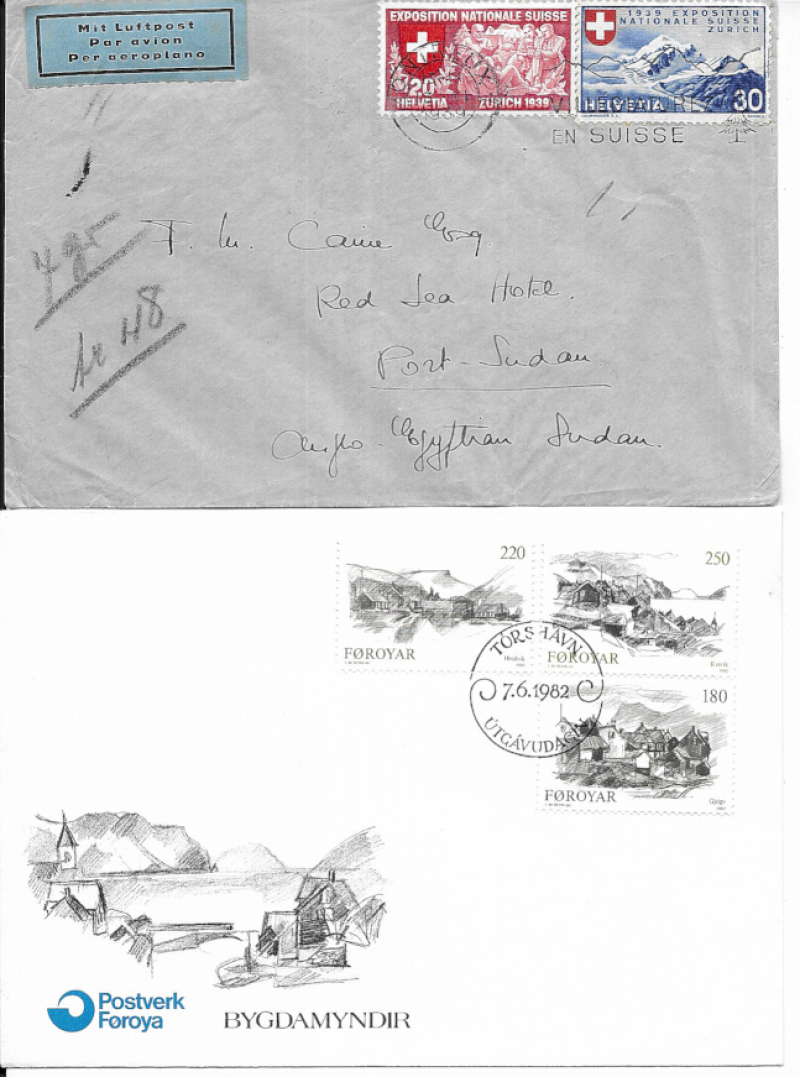 Mit Luftpost
Par avion
Per aeroplano
EXPOSITION NATIONALE SUISSE
20
HELVETIA ZURICH 1939
1939 EXPOSITION
NATIONALE SUISSE
ZURICH
HELVETIA 30
EN SUISSE
F. M. Caine Esq.
Red Sea Hotel.
Port-Sudan.
Anglo-Egyptian Sudan.
220
FØROYAR
250
FØROYAR
180
FØROYAR
Gjógv
TÓRSHAVN
7.6.1982
ÚTGÁVUDAGUR
Postverk
Føroya
BYGDAMYNDIR